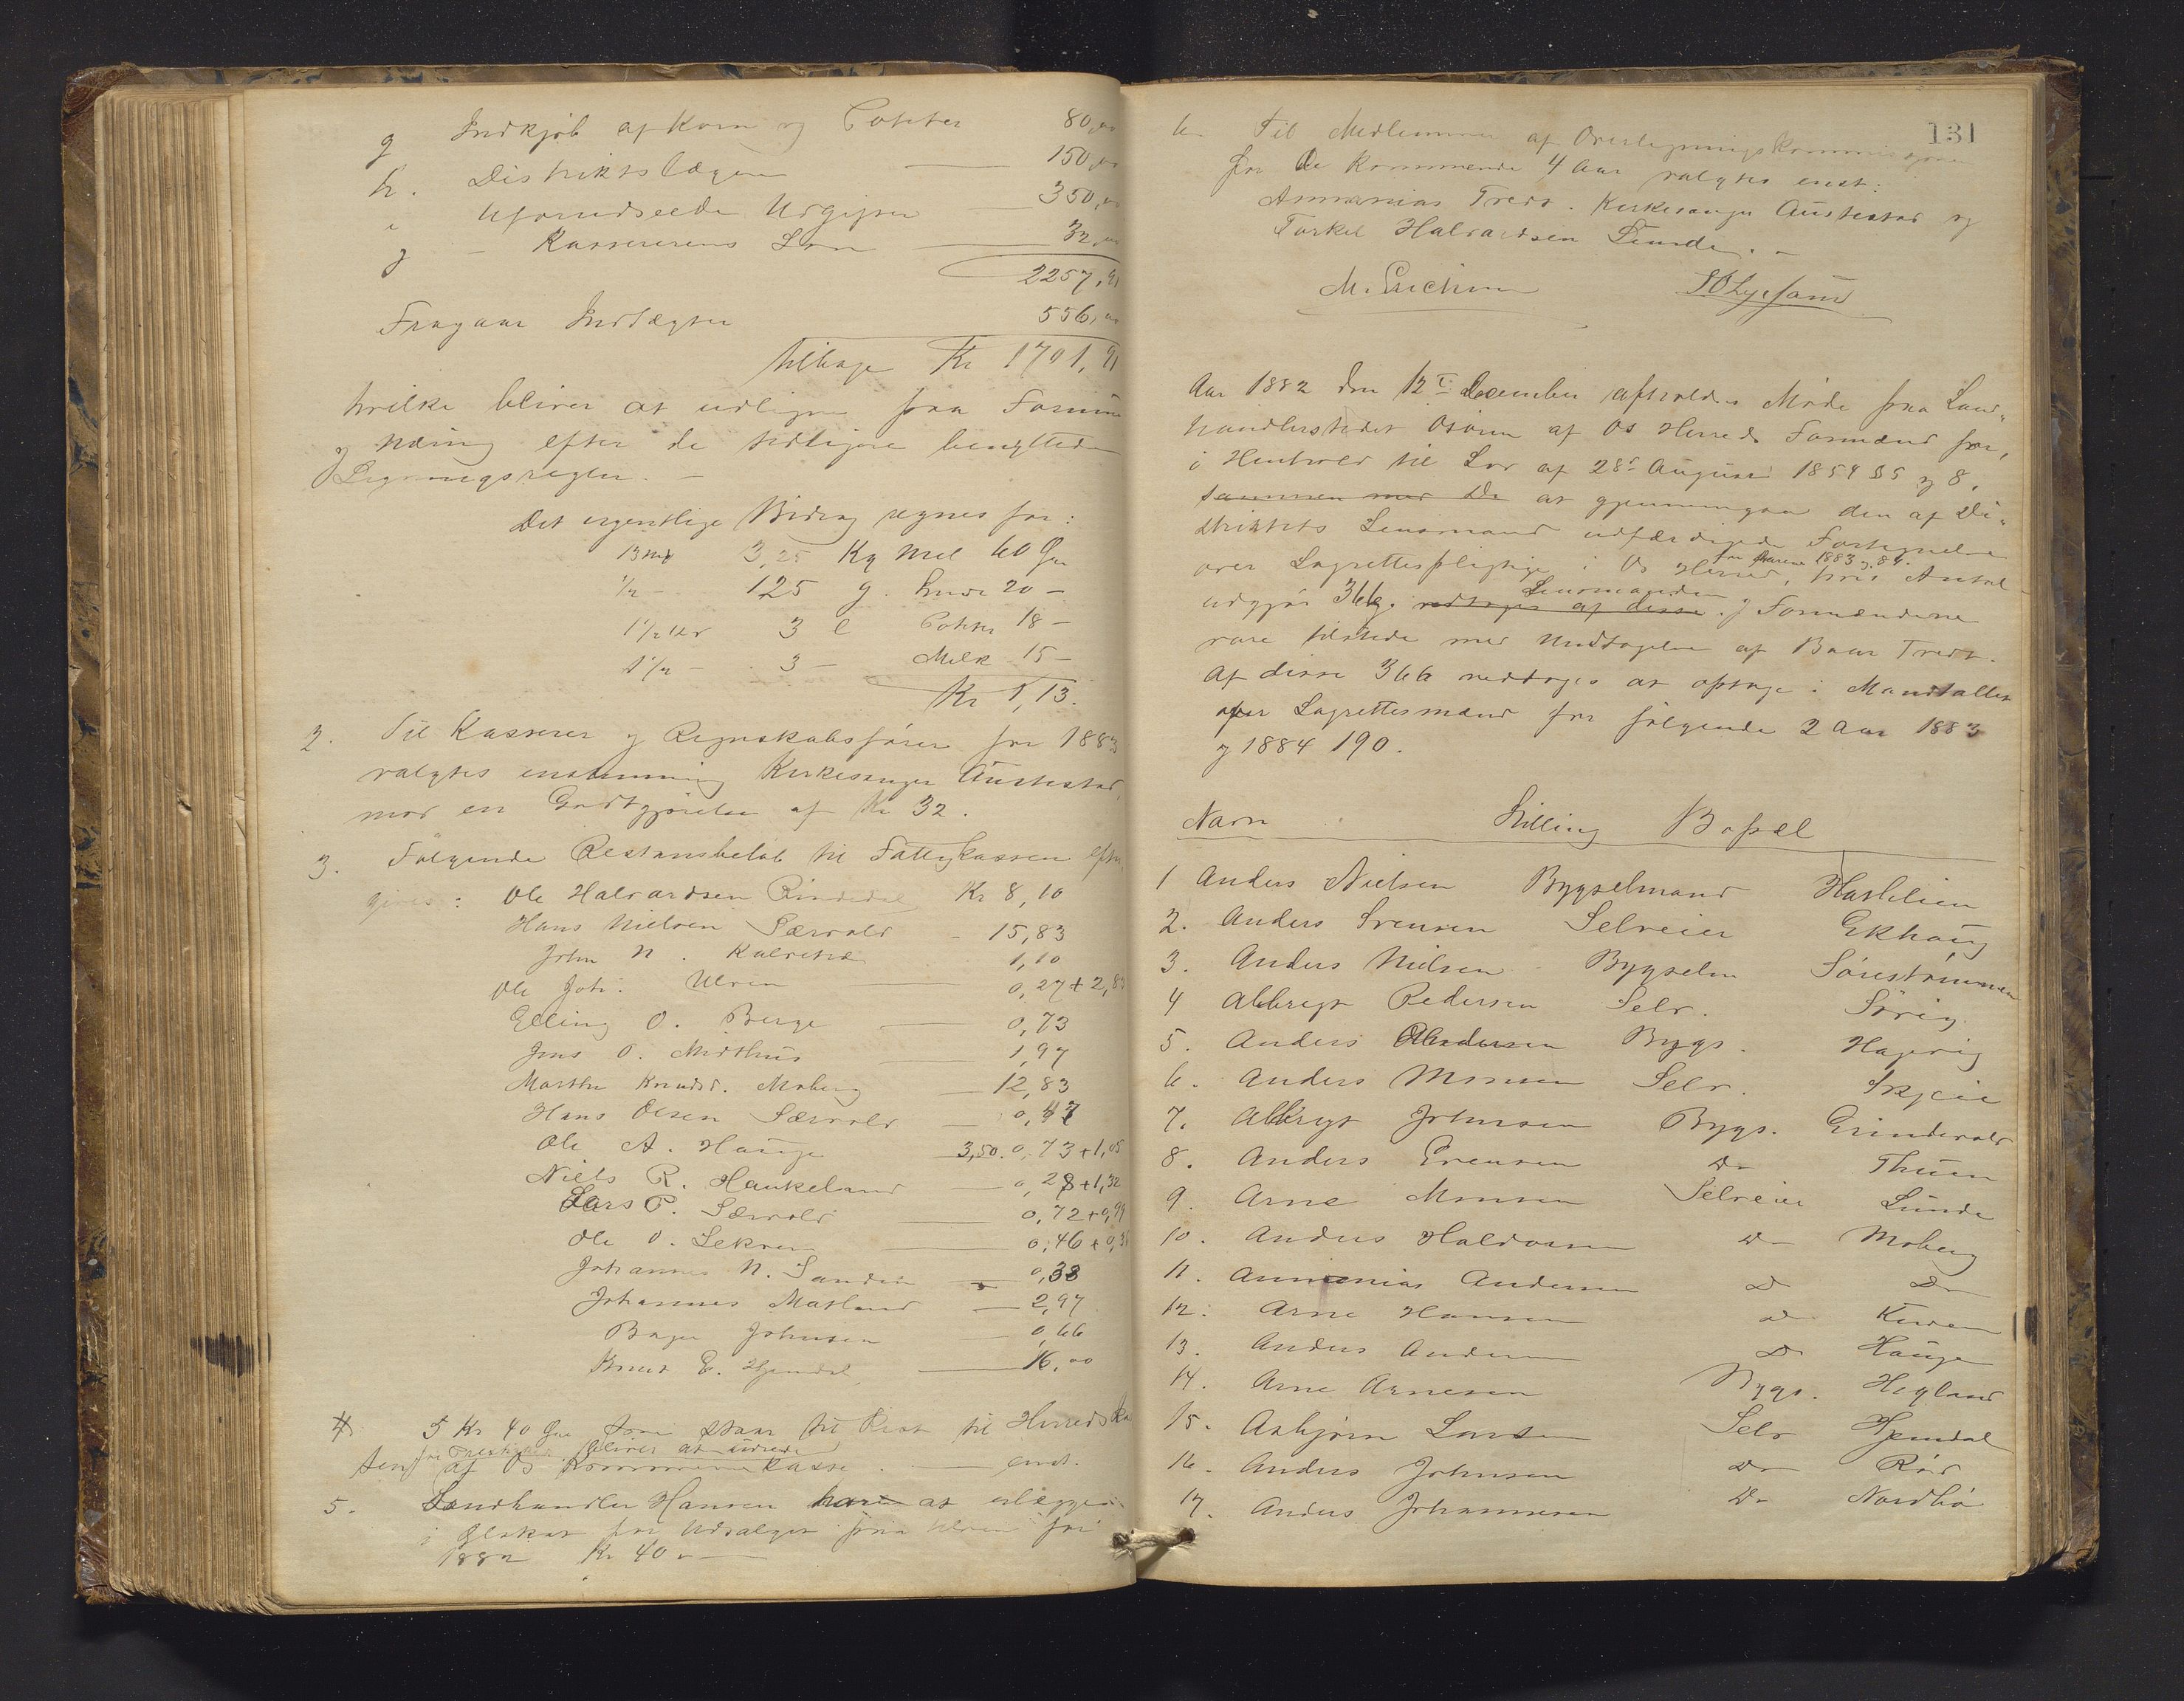 g Indkjøb af Korn og Poteter 80,00
h. Distriktslægen 150,00
i Uforudseede Udgifter 350,00
j - Kassererens Løn 32,00
2257,91
Fragaar Indtægter 556,00
tilbage Kr 1701,91
hvilke bliver at udligne paa Formue
og Næring efter de tidligere benyttede
Ligningsregler. -
Det ugentlige Bidrag regnes for:
13 mrk 3,25 Kg Mel 60 Øre
½ - 125 g. Smør 20 -
1½ 3 l Poteter 18 -
1½ - 3 - Melk 15 -
Kr 1,13.
2. Til Kasserer og Regnskabsfører for 1883
valgtes enstemmig Kirkesanger Austestad,
mod en Godtgjørelse af Kr 32.
3. Følgende Restansbeløb til Fattigkassen efter
gives: Ole Halvardsen Rindedal Kr 8,10
Hans Nielsen Særvold - 15,83
John N. Kalvetræ 1,10
Ole Joh. Ulven 0,27 + 2,83
Elling O. Berge 0,73
Jens O. Midthus 1,97
Marthe Knudsd. Moberg 12,83
Hans Olsen Særvold 0,47
Ole A. Hauge 3,50. 0,73 + 1,05
Niels R. Haukeland 0,28 + 1,32
Lars P. Særvold 0,72 + 0,99
Ole O. Lekven 0,46 + 0,31
Johannes N. Sandvin 0,38
Johannes Matland 2,97
Johnsen 0,66
Knut E. Hjendal 16,00
4 5 Kr 40 Øre som staar til Rest til Herredska
sen for bliver at udrede
af Os Kommunekasse. - enst.
5. Landhandler Hansen har at erlægge
i Ølskat for Udsalget fra Ulven for
1882 Kr 40 -
131
6. Til Medlemmer af Overligningskommissionen
for de kommende 4 Aar valgtes enst:
Ammanias Tveit. Kirkesanger Austestad og
Torkel Halvardsen Lunde. -
M. Erichsen
Aar 1882 den 12te December afholdtes Møde paa Land-
handlerstedet Osøren af Os Herreds Formænd for,
i Henhold til Lov af 28de August 1854 §5 og 8,
sammen med De at gjennemgaa den af Di-
striktets Lensmand udfærdigede Fortegnelse
for Aarene 1883 og 84.
over Lagrettespligtige i Os Herred, hvis Antal
Lensmanden
udgjør 366. vedtoges af disse. og Formændene
vare tilstede med Undtagelse af Baar Tveit.
Af disse 366 vedtoges at optage i Mandtallet
over Lagrettesmænd for følgende 2 Aar 1883
og 1884 190.
Navn Stilling Bopæl
1 Anders Nielsen Bygselmand Hatlelien
2. Anders Svensen Selveier Ekhaug
3. Anders Nielsen Bygselm Sørestrømmen
4 Albregt Pedersen Selv. Sørvig
5. Anders Andersen Bygs. Hagevig
6. Anders Monsen Selv. Skjeie
7. Albregt Johnsen Bygs. Grindevold
8. Anders Evensen Do Thuen
9. Arne Monsen Selveier Lunde
10. Anders Haldorsen Do Moberg
11. Ammanias Andersen Do Do
12. Arne Hansen Do Kuven
13. Anders Andersen Do Hauge
14. Arne Arnesen Bygs. Hegland
15. Asbjørn Larsen Selv Hjendal
16. Anders Johnsen Do Rød
17. Anders Johannesen Do Nordbø